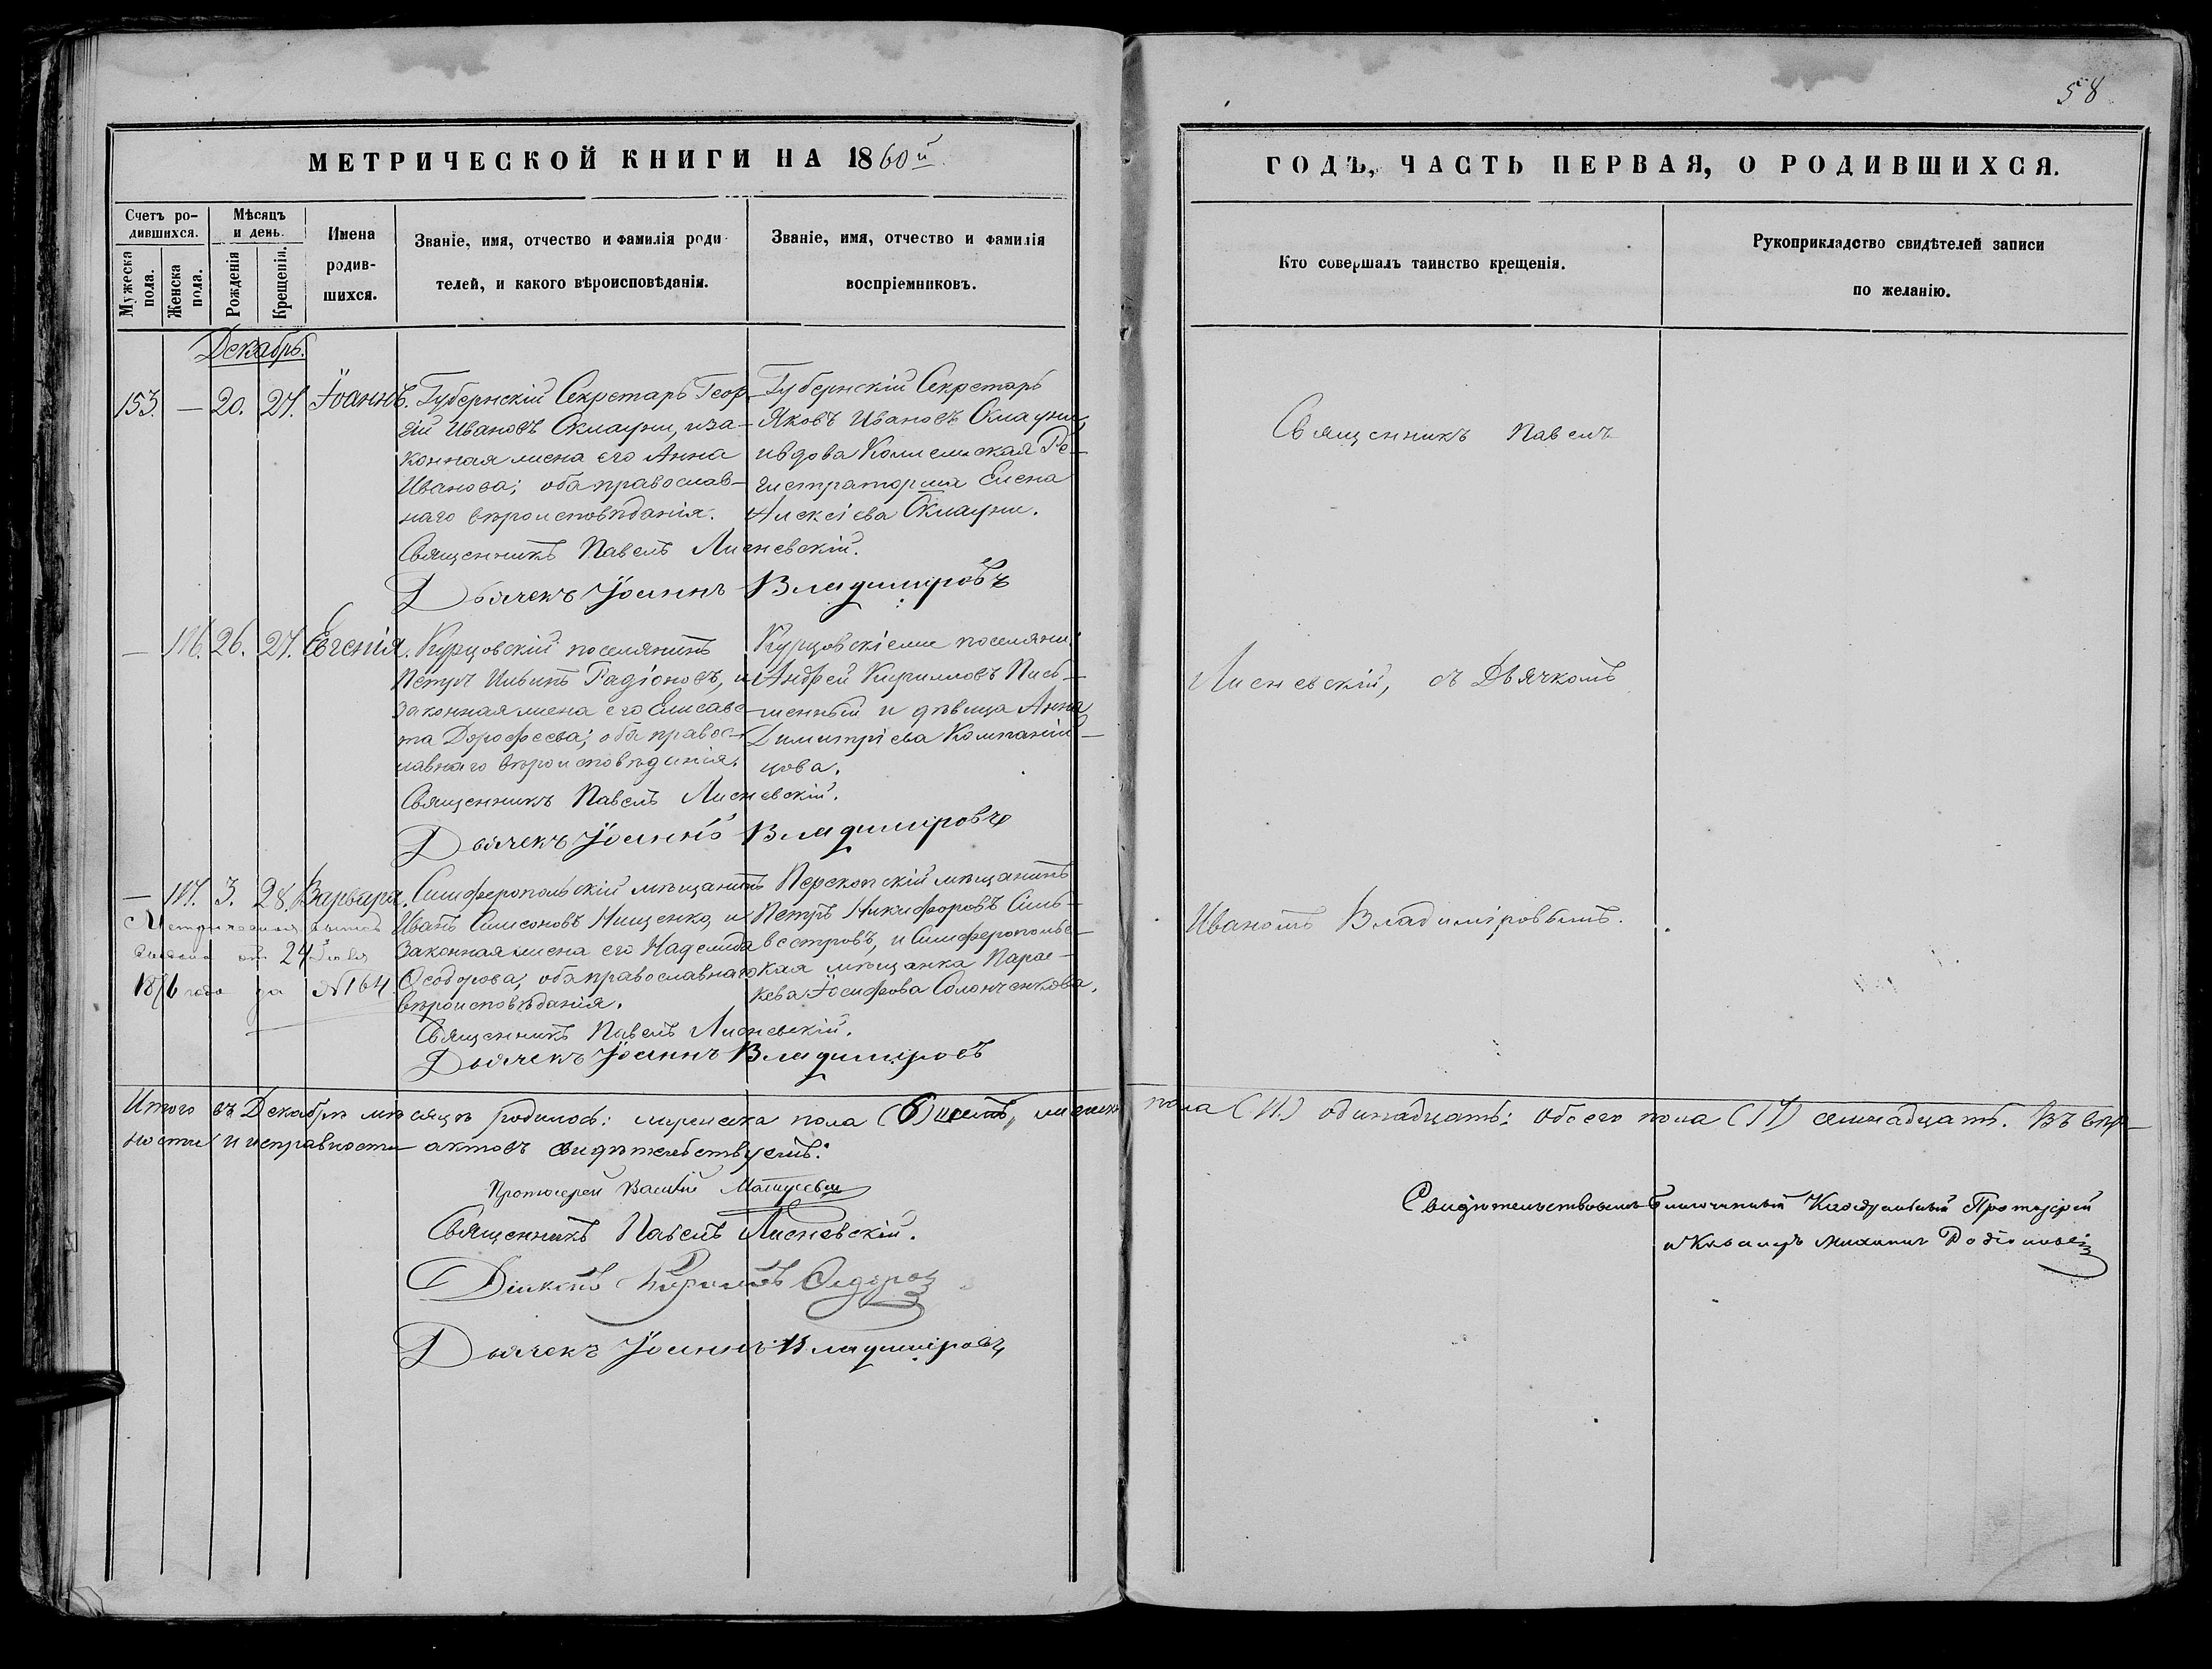 58
МЕТРИЧЕСКОЙ КНИГИ НА 1860й
ГОДЪ, ЧАСТЬ ПЕРВАЯ, О РОДИВШИХСЯ.
Счетъ родившихся.
Мужеска пола.
Женска пола.
Мѣсяцъ и день.
Рожденія
Крещенія.
Имена родившихся.
Званіе, имя, отчество и фамилія роди-
телей, и какого вѣроисповѣданія.
Званіе, имя, отчество и фамилія
воспріемниковъ.
Кто совершалъ таинство крещенія.
Рукоприкладство свидѣтелей записи
по желанію.
Декабрь.
153. — 20. 27. Іоаннъ.
Губернскій Секретарь Геор-
гій Ивановъ Склауни, и за-
конная жена его Анна
Иванова; оба православ-
наго вѣроисповѣданія.
Губернскій Секретарь
Яковъ Ивановъ Склауни,
и вдова Коллежская Ре-
гистраторша Елена
Алексіева Склауни.
Священникъ Павелъ Лисневскій.
Дьячекъ Іоаннъ Владиміровъ
— 116. 26. 27. Евгенія.
Курцовскій поселянинъ
Петръ Ильинъ Радіоновъ, и
законная жена его Елисаве-
та Дорофеева; оба правос-
лавнаго вѣроисповѣданія.
Курцовскіе поселяни:
Андрей Кирилловъ Пись-
менный и дѣвица Анна
Димитріева Компаній-
цова.
Священникъ Павелъ Лисневскій.
Дьячекъ Іоаннъ Владиміровъ
— 117. 3. 28. Варвара.
Симферопольскій мѣщанинъ
Иванъ Симеоновъ Нищенко, и
законная жена его Надежда
Ѳеодорова; оба православнаго
вѣроисповѣданія.
Перекопскій мѣщанинъ
Петръ Никифоровъ Силь-
вестровъ, и Симферопольс-
кая мѣщанка Парас-
кева Іосифова Солонченкова.
24 Іюля
1876 года за №164
Священникъ Павелъ Лисневскій.
Дьячекъ Іоаннъ Владиміровъ
Священникъ Павелъ
Лисневскій, съ Дьячкомъ
Иваномъ Владиміровымъ.
Итого въ Декабрѣ мѣсяцѣ родилось: мужеска пола (6) шесть, женска пола (11.) одинадцать; обоего пола (17) семнадцать. Въ вѣр-
ности и исправности актовъ свидѣтельствуемъ:
Протоіерей Василій
Священникъ Павелъ Лисневскій.
Діаконъ Кириллъ
Дьячекъ Іоаннъ Владиміровъ
Свидѣтельствовалъ Благочинный Каѳедральный Протоіерей
и Кавалеръ Михаилъ Родіоновъ